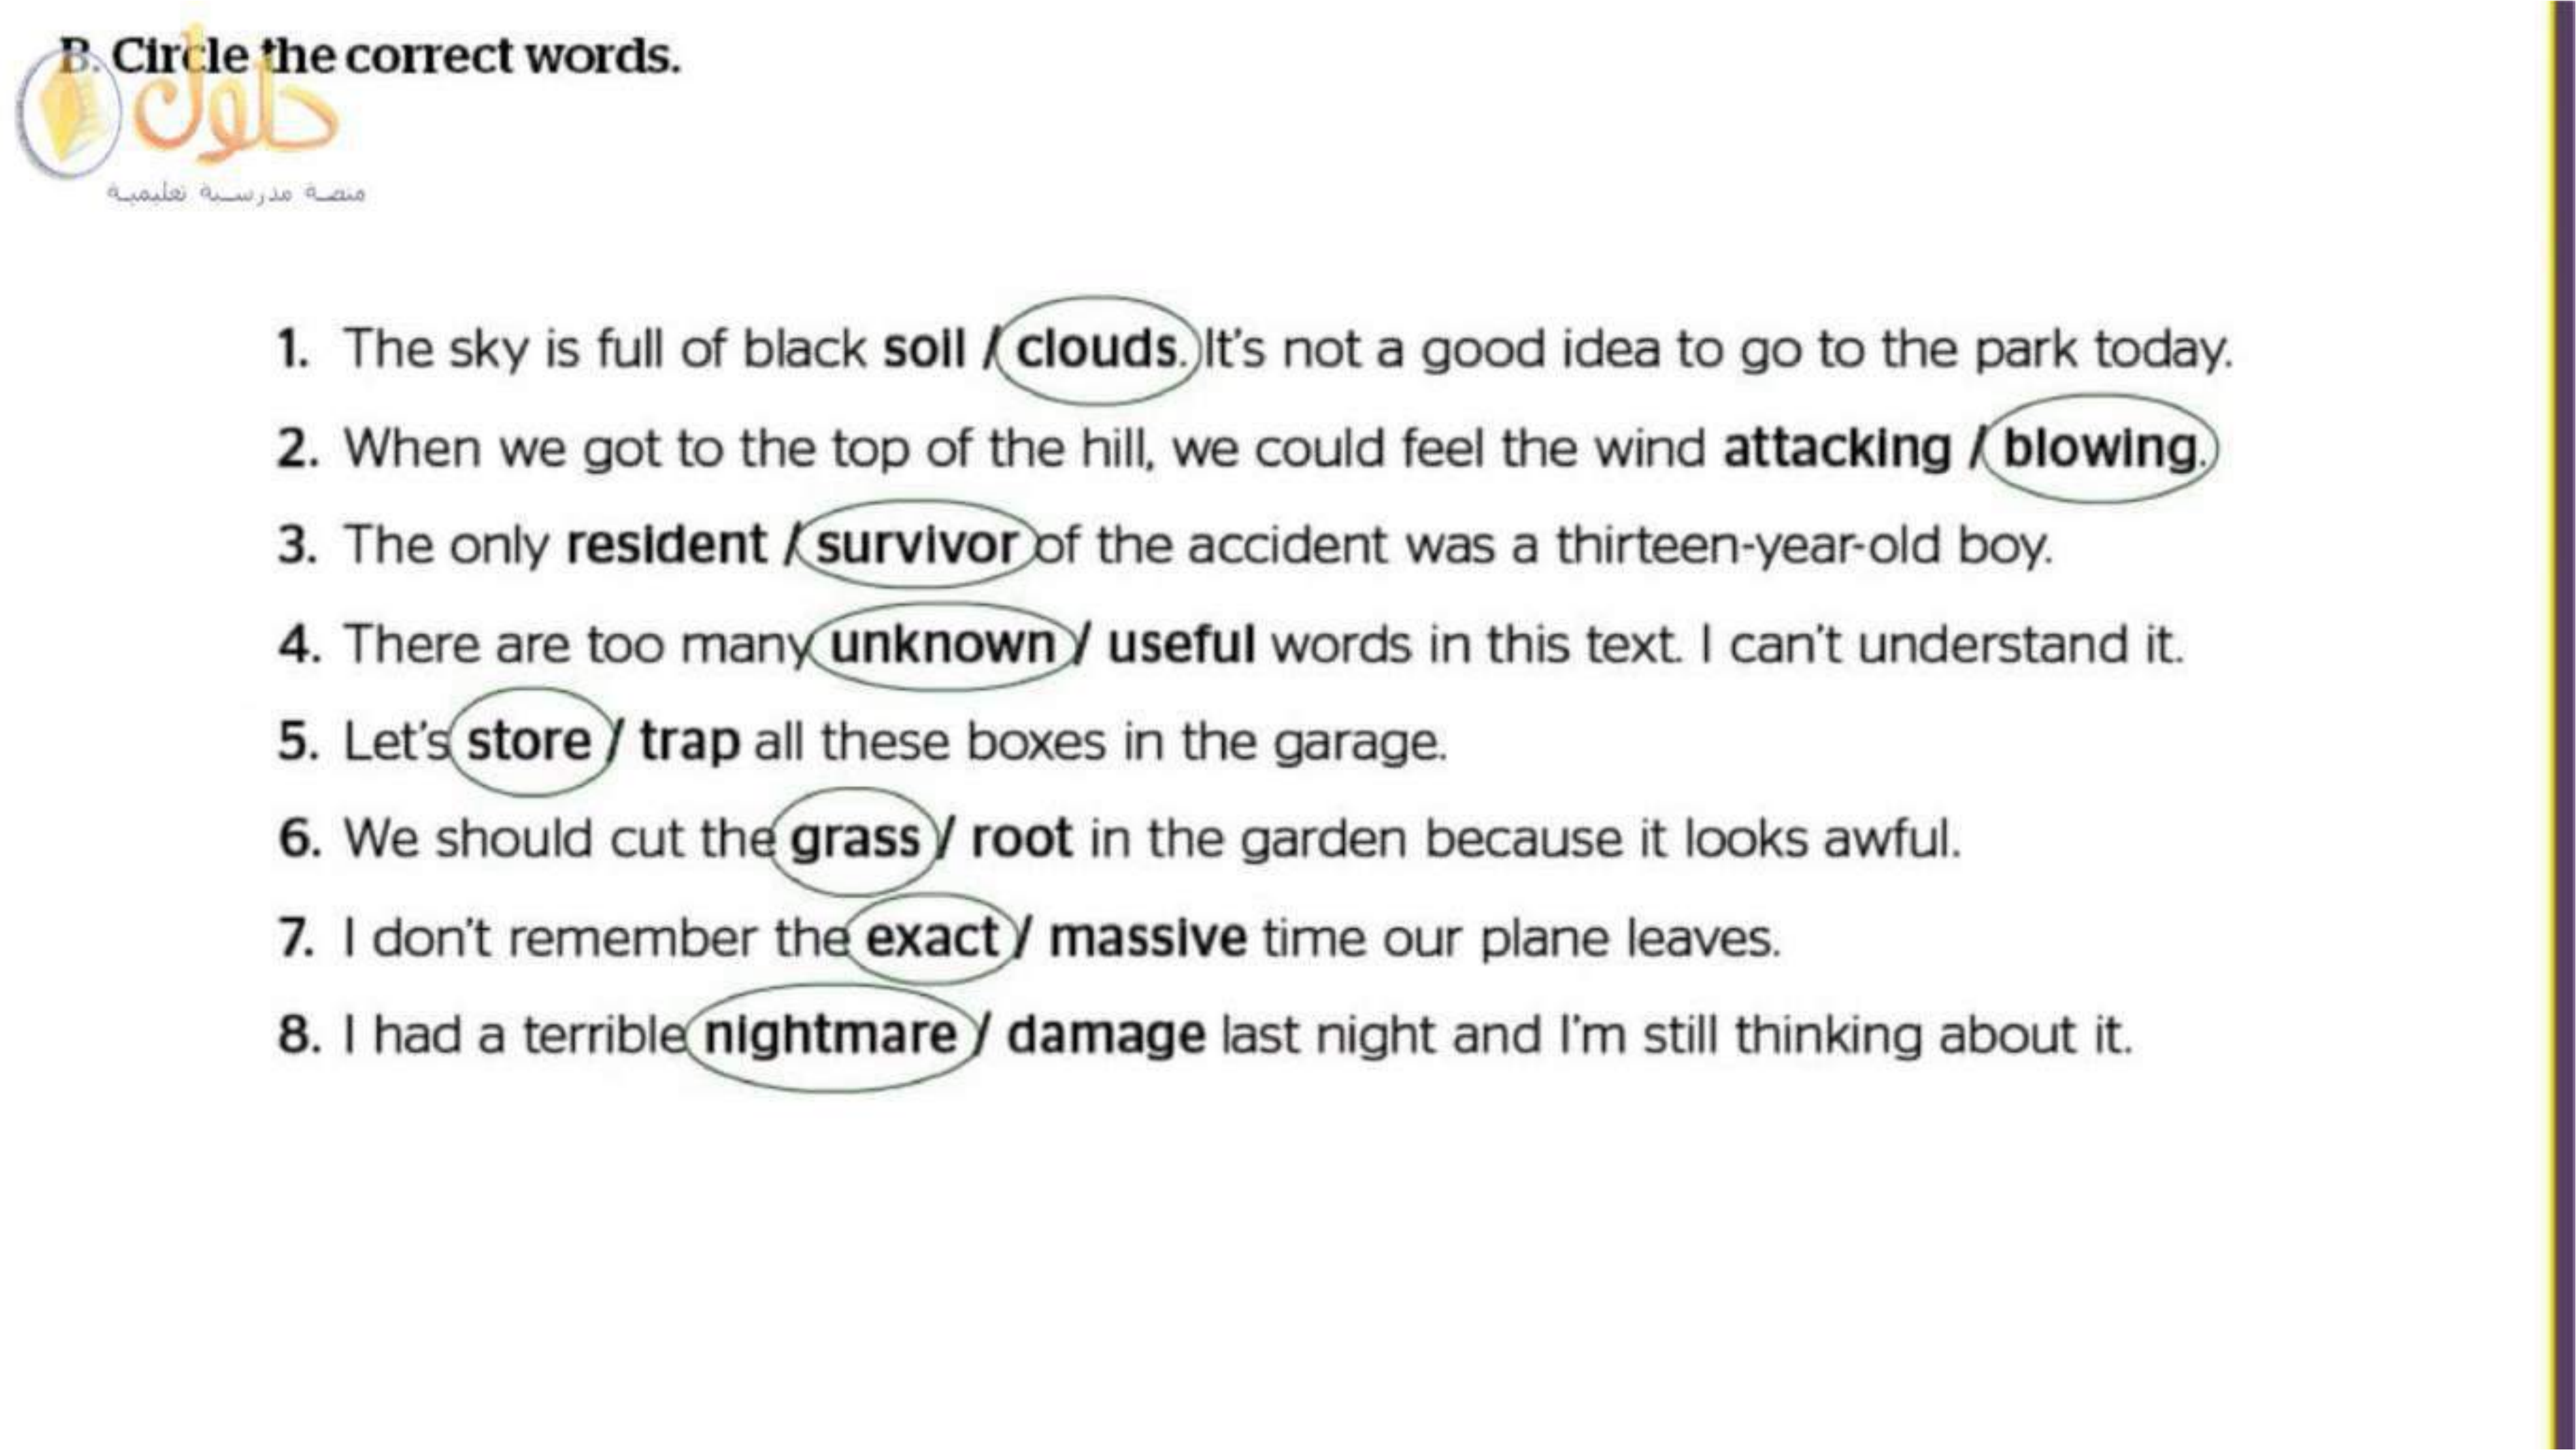 B. Circle the correct words.
حلول
منصة مدرسية تعليمية
1. The sky is full of black soil / clouds. It's not a good idea to go to the park today.
2. When we got to the top of the hill, we could feel the wind attacking / blowing.
3. The only resident / survivor of the accident was a thirteen-year-old boy.
4. There are too many unknown / useful words in this text. I can't understand it.
5. Let's store / trap all these boxes in the garage.
6. We should cut the grass / root in the garden because it looks awful.
7. I don't remember the exact / massive time our plane leaves.
8. I had a terrible nightmare / damage last night and I'm still thinking about it.